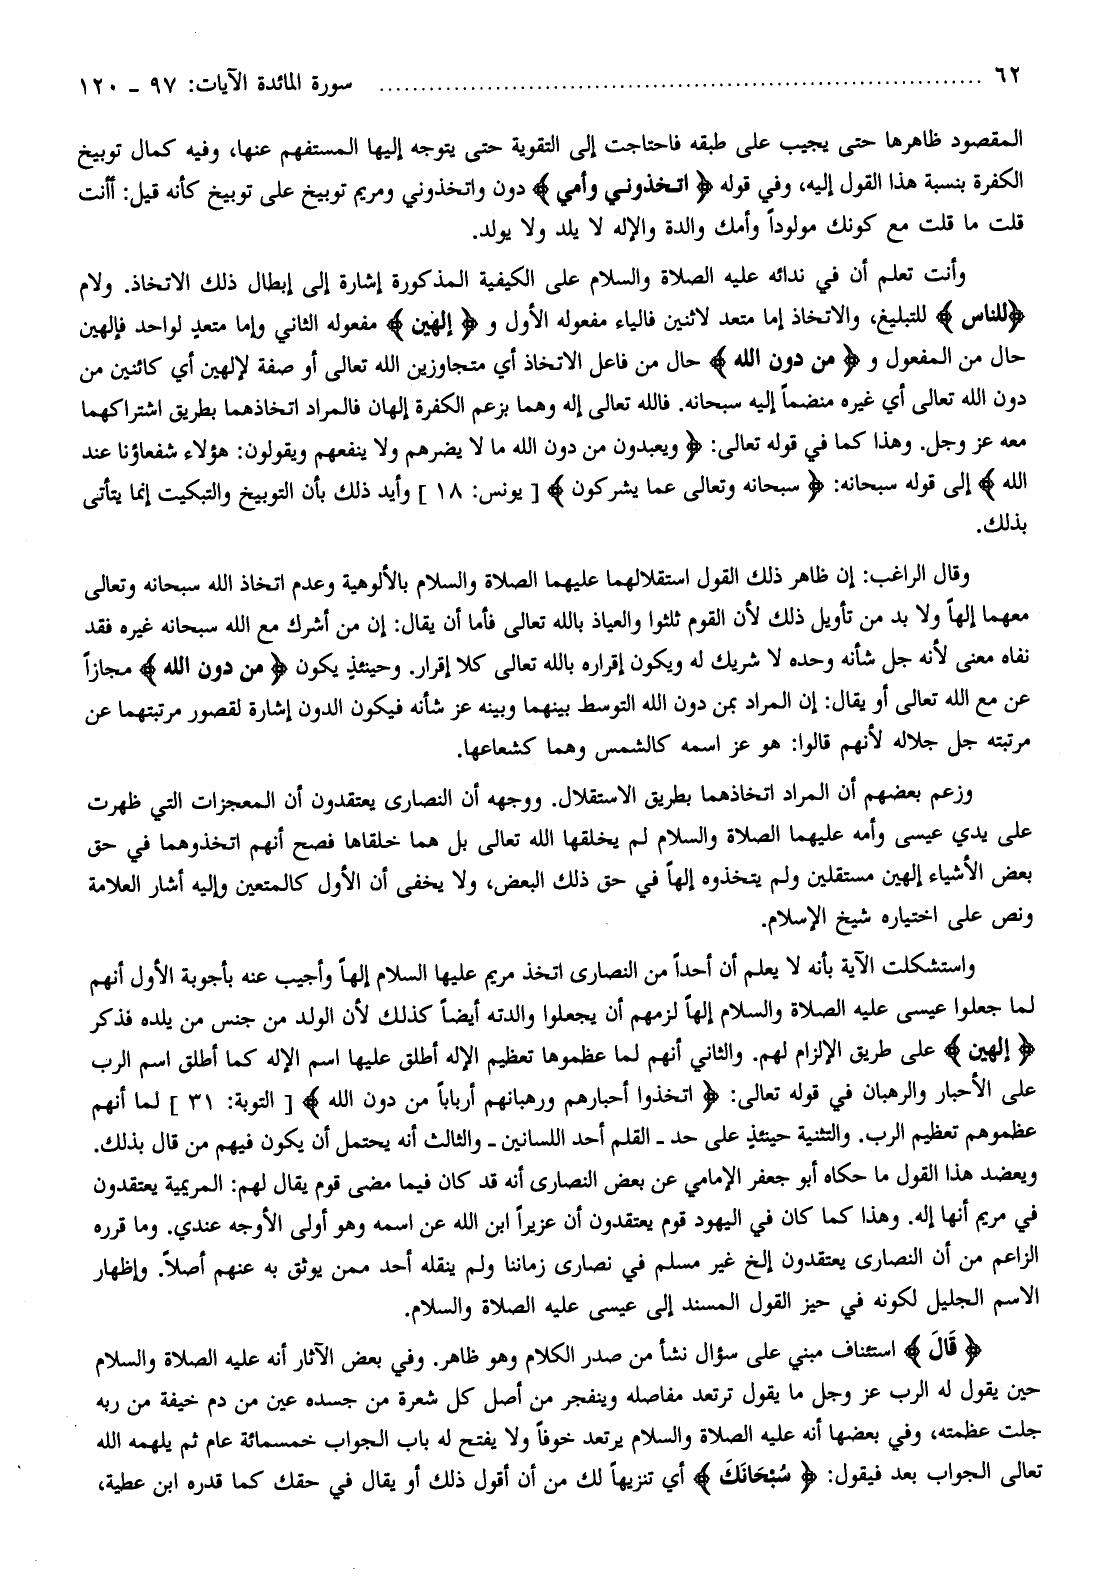 ٦٢ ........................................ سورة المائدة الآيات: ٩٧ ـ ١٢٠
المقصود ظاهرها حتى يجيب على طبقه فاحتاجت إلى التقوية حتى يتوجه إليها المستفهم عنها، وفيه كمال توبيخ
الكفرة بنسبة هذا القول إليه، وفي قوله ﴿ اتخذوني وأمي ﴾ دون واتخذوني ومريم توبيخ على توبيخ كأنه قيل: أأنت
قلت ما قلت مع كونك مولوداً وأمك والدة والإله لا يلد ولا يولد.
وأنت تعلم أن في ندائه عليه الصلاة والسلام على الكيفية المذكورة إشارة إلى إبطال ذلك الاتخاذ. ولام
﴿للناس ﴾ للتبليغ، والاتخاذ إما متعد لاثنين فالياء مفعوله الأول و ﴿ إلهين ﴾ مفعوله الثاني وإما متعدٍ لواحد فإلهين
حال من المفعول و ﴿ من دون الله ﴾ حال من فاعل الاتخاذ أي متجاوزين الله تعالى أو صفة لإلهين أي كائنين من
دون الله تعالى أي غيره منضماً إليه سبحانه. فالله تعالى إله وهما بزعم الكفرة إلهان فالمراد اتخاذهما بطريق اشتراكهما
معه عز وجل. وهذا كما في قوله تعالى: ﴿ ويعبدون من دون الله ما لا يضرهم ولا ينفعهم ويقولون: هؤلاء شفعاؤنا عند
الله ﴾ إلى قوله سبحانه: ﴿ سبحانه وتعالى عما يشركون ﴾ [ يونس: ١٨ ] وأيد ذلك بأن التوبيخ والتبكيت إنما يتأتى
بذلك.
وقال الراغب: إن ظاهر ذلك القول استقلالهما عليهما الصلاة والسلام بالألوهية وعدم اتخاذ الله سبحانه وتعالى
معهما إلهاً ولا بد من تأويل ذلك لأن القوم ثلثوا والعياذ بالله تعالى فأما أن يقال: إن من أشرك مع الله سبحانه غيره فقد
نفاه معنى لأنه جل شأنه وحده لا شريك له ويكون إقراره بالله تعالى كلا إقرار. وحينئذٍ يكون ﴿ من دون الله ﴾ مجازاً
عن مع الله تعالى أو يقال: إن المراد بمن دون الله التوسط بينهما وبينه عز شأنه فيكون الدون إشارة لقصور مرتبتهما عن
مرتبته جل جلاله لأنهم قالوا: هو عز اسمه كالشمس وهما كشعاعها.
وزعم بعضهم أن المراد اتخاذهما بطريق الاستقلال. ووجهه أن النصارى يعتقدون أن المعجزات التي ظهرت
على يدي عيسى وأمه عليهما الصلاة والسلام لم يخلقها الله تعالى بل هما خلقاها فصح أنهم اتخذوهما في حق
بعض الأشياء إلهين مستقلين ولم يتخذوه إلهاً في حق ذلك البعض، ولا يخفى أن الأول كالمتعين وإليه أشار العلامة
ونص على اختياره شيخ الإسلام.
واستشكلت الآية بأنه لا يعلم أن أحداً من النصارى اتخذ مريم عليها السلام إلهاً وأجيب عنه بأجوبة الأول أنهم
لما جعلوا عيسى عليه الصلاة والسلام إلهاً لزمهم أن يجعلوا والدته أيضاً كذلك لأن الولد من جنس من يلده فذكر
﴿ إلهين ﴾ على طريق الإلزام لهم. والثاني أنهم لما عظموها تعظيم الإله أطلق عليها اسم الإله كما أطلق اسم الرب
على الأحبار والرهبان في قوله تعالى: ﴿ اتخذوا أحبارهم ورهبانهم أرباباً من دون الله ﴾ [ التوبة: ٣١ ] لما أنهم
عظموهم تعظيم الرب. والتثنية حينئذٍ على حد ـ القلم أحد اللسانين ـ والثالث أنه يحتمل أن يكون فيهم من قال بذلك.
ويعضد هذا القول ما حكاه أبو جعفر الإمامي عن بعض النصارى أنه قد كان فيما مضى قوم يقال لهم: المريمية يعتقدون
في مريم أنها إله. وهذا كما كان في اليهود قوم يعتقدون أن عزيراً ابن الله عن اسمه وهو أولى الأوجه عندي. وما قرره
الزاعم من أن النصارى يعتقدون إلخ غير مسلم في نصارى زماننا ولم ينقله أحد ممن يوثق به عنهم أصلاً. وإظهار
الاسم الجليل لكونه في حيز القول المسند إلى عيسى عليه الصلاة والسلام.
﴿ قَالَ ﴾ استئناف مبني على سؤال نشأ من صدر الكلام وهو ظاهر. وفي بعض الآثار أنه عليه الصلاة والسلام
حين يقول له الرب عز وجل ما يقول ترتعد مفاصله وينفجر من أصل كل شعرة من جسده عين من دم خيفة من ربه
جلت عظمته، وفي بعضها أنه عليه الصلاة والسلام يرتعد خوفاً ولا يفتح له باب الجواب خمسمائة عام ثم يلهمه الله
تعالى الجواب بعد فيقول: ﴿ سُبْحَانَكَ ﴾ أي تنزيهاً لك من أن أقول ذلك أو يقال في حقك كما قدره ابن عطية،